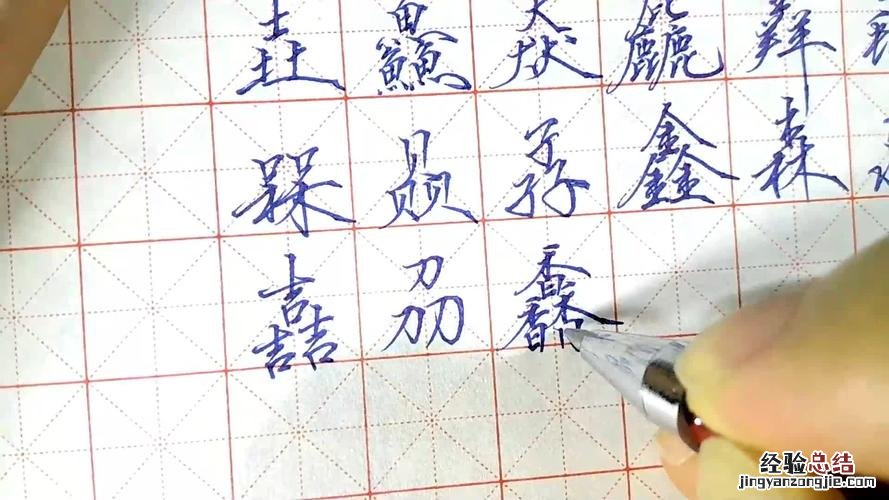 垚 鱻 猋 麤 羴
赑 孨 鑫 森
嚞 刕 馫
经验总结
jingyanzongjie.com